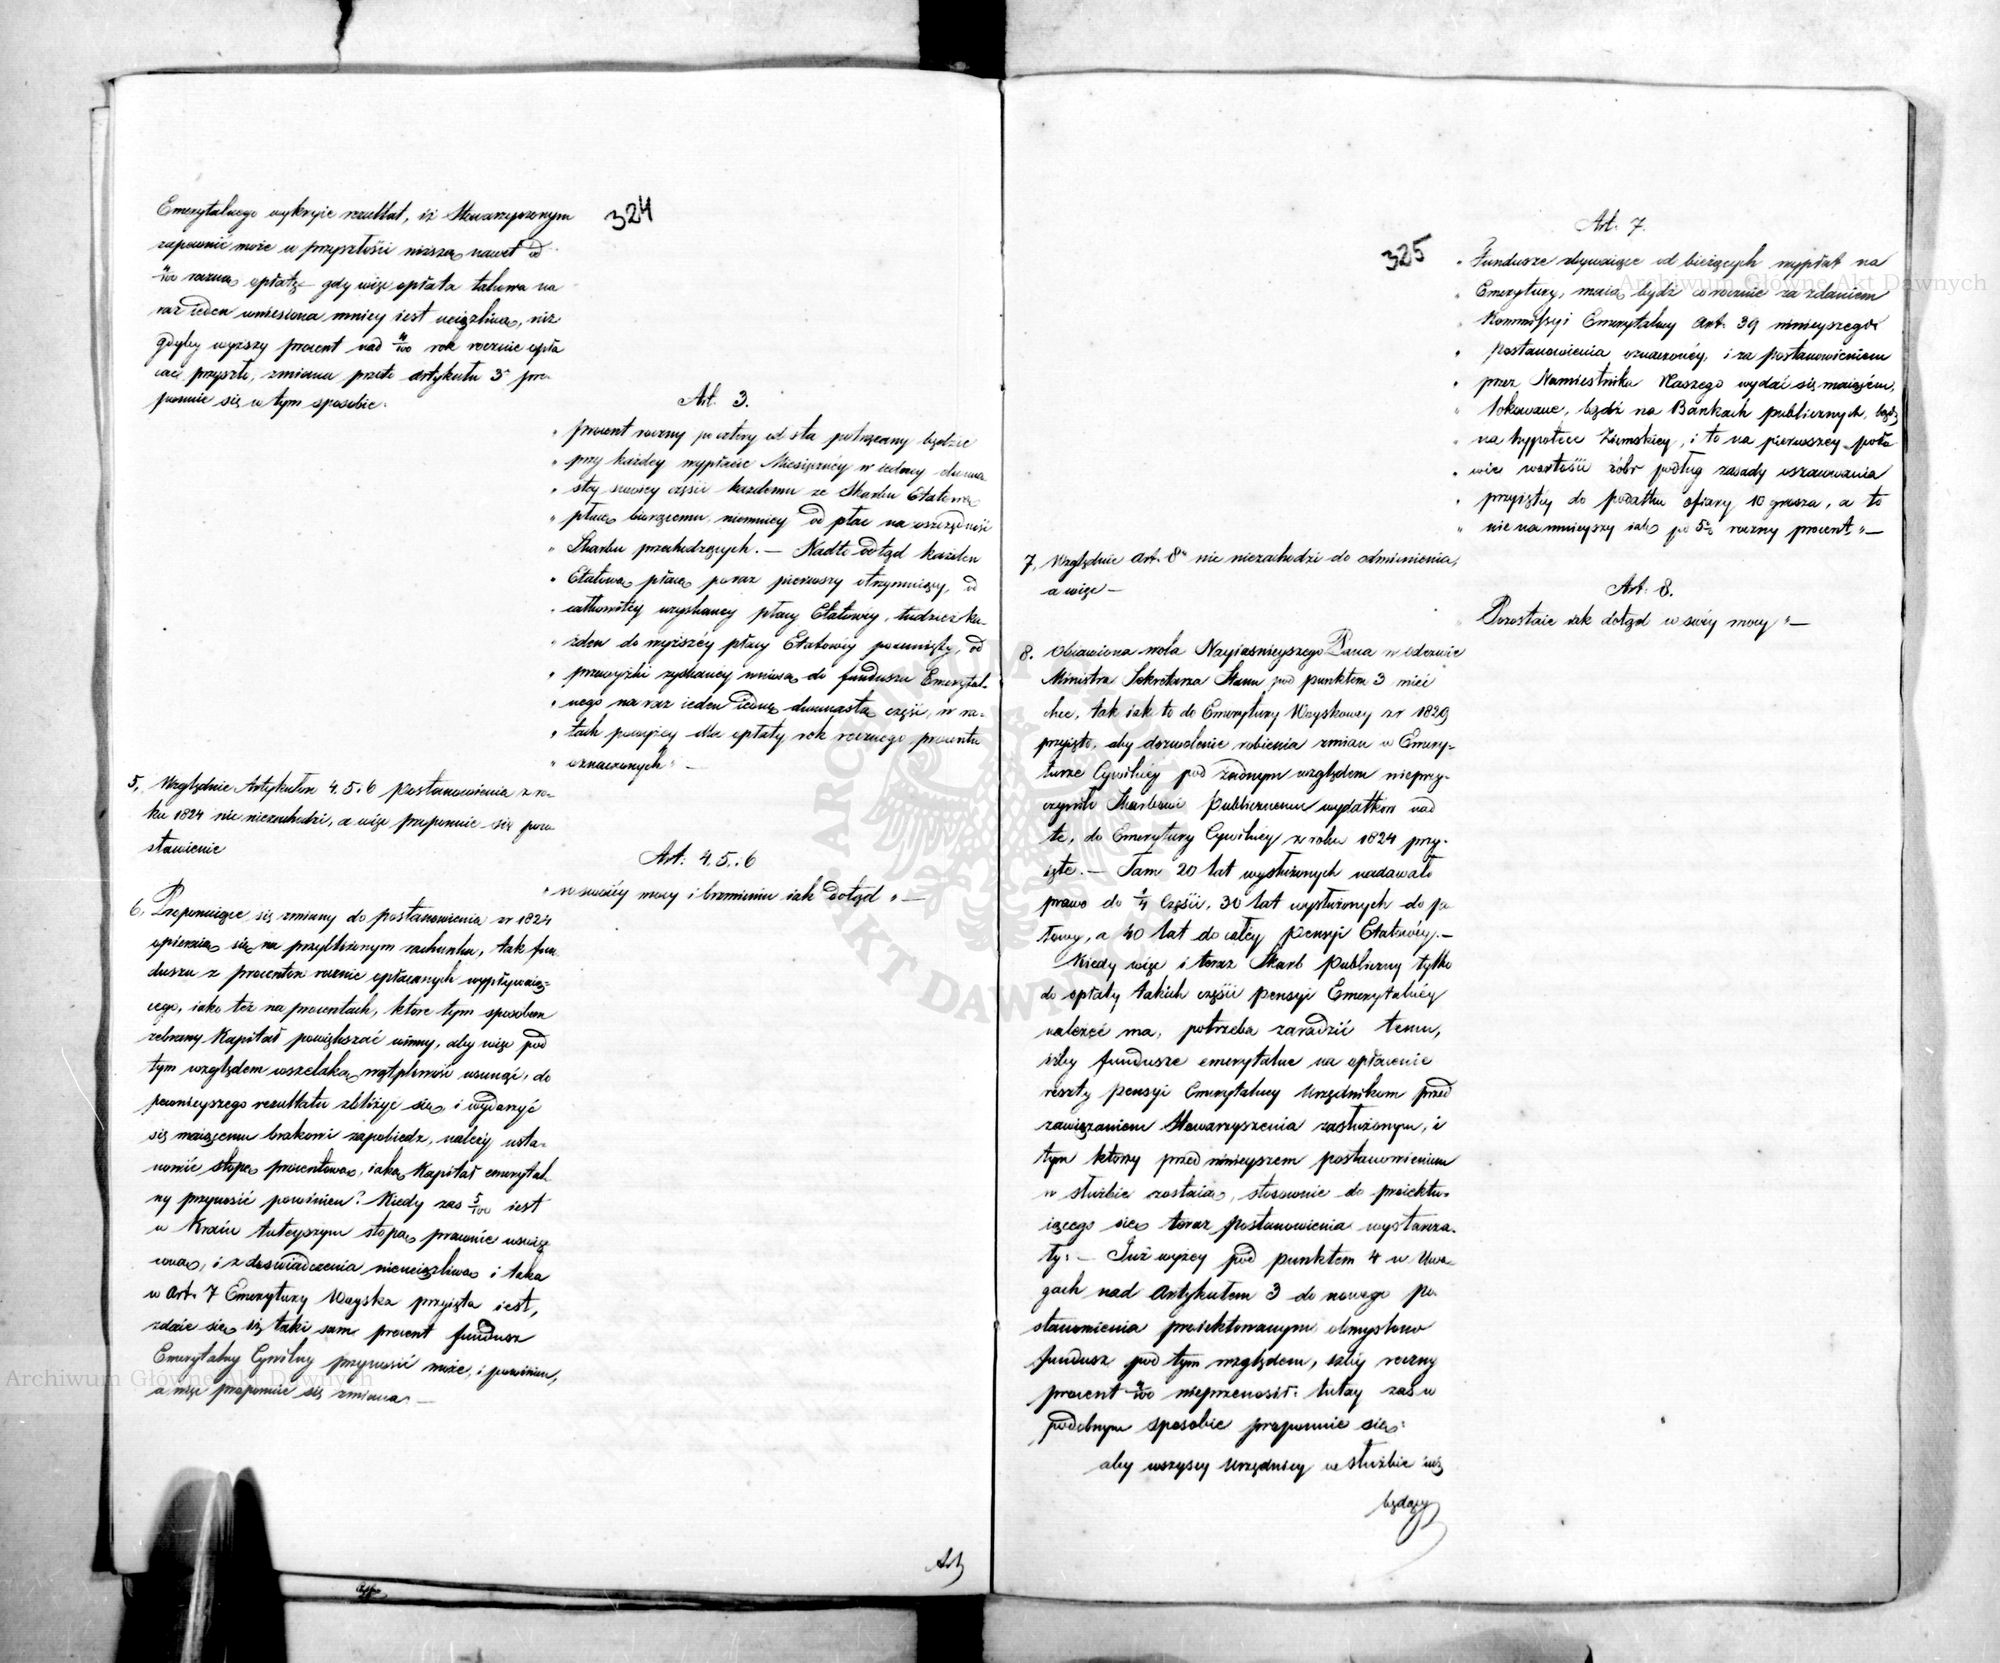 324
Emerytalnego wykryie rezultat, iż Stowarzyszonym
zapewnić może w przyszłości niższą nawet od
4/100 roczną opłatę gdy więc opłata takowa na
raz ieden wniesiona mniey iest uciążliwa, niż
gdyby wyższy procent nad 4/100 rok rocznie opła
cać przyszło, zmiana przeto artykułu 3º pro-
ponuie się w tym sposobie.
Art. 3.
„ Procent roczny po cztery od sta potrącany będzie
„ przy każdey wypłacie Miesięczney w iedney dwuna
„ stey swoiey części każdemu ze Skarbu Etatową
„ płacę biorącemu, niemniey od płac na oszczędność
„ Skarbu przechodzących. — Nadto odtąd każden
„ Etatową płacę poraz pierwszy otrzymuiący, od
„ całkowitey uzyskaney płacy Etatowéy, tudzież ka-
„ żden do wyższéy płacy Etatowéy posunięty, od
„ przewyżki zyskaney wniesie do funduszu Emerytal-
„ nego na raz ieden iedną dwunastą część, w ra-
„ tach powyżey dla opłaty rok rocznego procentu
„ oznaczonych" —
5, Względnie Artykułów 4. 5. 6 Postanowienia z ro-
ku 1824 nic niezachodzi, a więc proponuie się pozo
stawienie
Art: 4. 5. 6
„ w swoiéy mocy i brzmieniu iak dotąd „ —
6. Proponuiące się zmiany do postanowienia z r 1824
opieraią się na przybliżonym rachunku, tak fun
duszu z procentów rocznie opłacanych wypływaią-
cego, iako też na procentach, które tym sposobem
zebrany Kapitał powiększać winny, aby więc pod
tym względem wszelaką wątpliwość usunąć, do
pewnieyszego rezultatu zbliżyć się, i wydarzyć
się maiącemu brakowi zapobiedz, należy usta-
nowić stopę procentową, iaką Kapitał emerytal-
ny przynosić powinien? Kiedy zaś 5/100 iest
w Kraiu tuteyszym stopą prawnie uświę
coną, i z doświadczenia nieuciążliwą i taka
w Art. 7 Emerytury Woyska przyięta iest,
zdaie się iż taki sam procent fundusz
Emerytalny Cywilny przynosić może, i powinien,
a więc proponuie się zmiana. —
Art
325
Art. 7.
„ Fundusze zbywaiące od bieżących wypłat na
„ Emerytury, maią bydź corocznie za zdaniem
„ Kommissyi Emerytalney Art. 39 ninieyszego
„ Postanowienia oznaczonéy, i za postanowieniem
„ przez Namiestnika Naszego wydać się maiącém,
„ lokowane, bądź na Bankach publicznych, bądź
„ na hypotece Ziemskiey, i to na pierwszey poło
„ wie wartości dóbr podług zasady szacowania
„ przyiętey do podatku ofiary 10 grosza, a to
„ nie na mnieyszy iak po 5/100 roczny procent" —
7, Względnie Art. 8º nic niezachodzi do odmienienia,
a więc —
Art. 8.
„ Pozostaie iak dotąd w swéy mocy " —
8. Obiawiona wola Nayiaśnieyszego Pana w odezwie
Ministra Sekretarza Stanu pod punktem 3 mieć
chce, tak iak to do Emerytury Woyskowey z r 1829
przyięto, aby dozwolenie robienia zmian w Emery-
turze Cywilnéy pod żadnym względem nieprzy-
czyniło Skarbowi Publicznemu wydatków nad
te, do Emerytury Cywilnéy z roku 1824 przy-
ięte. — Tam 20 lat wysłużonych nadawało
prawo do 1/4 Części, 30 lat wysłużonych do po
łowy, a 40 lat do całey Pensyi Etatowéy. —
Kiedy więc i teraz Skarb Publiczny tylko
do opłaty takich części Pensyi Emerytalnéy
należéć ma, potrzeba zaradzić temu,
iżby fundusze emerytalne na opłacenie
reszty Pensyi Emerytalney Urzędnikom przed
zawiązaniem Stowarzyszenia zasłużonym, i
tym którzy przed ninieyszem postanowieniem
w służbie zostaią, stosownie do proiektu-
iącego się teraz postanowienia wystarcza-
ły: — Już wyżey pod punktem 4 w Uwa-
gach nad Artykułem 3 do nowego po
stanowienia proiektowanym obmyślono
fundusz pod tym względem, iżby roczny
procent 4/100 nieprzenosił. tutay zaś w
podobnym sposobie proponuie się:
aby wszyscy Urzędnicy w służbie iuż
będący
Archiwum Główne Akt Dawnych
Archiwum Główne Akt Dawnych
ARCHIWUM GŁÓWNE AKT DAWNYCH